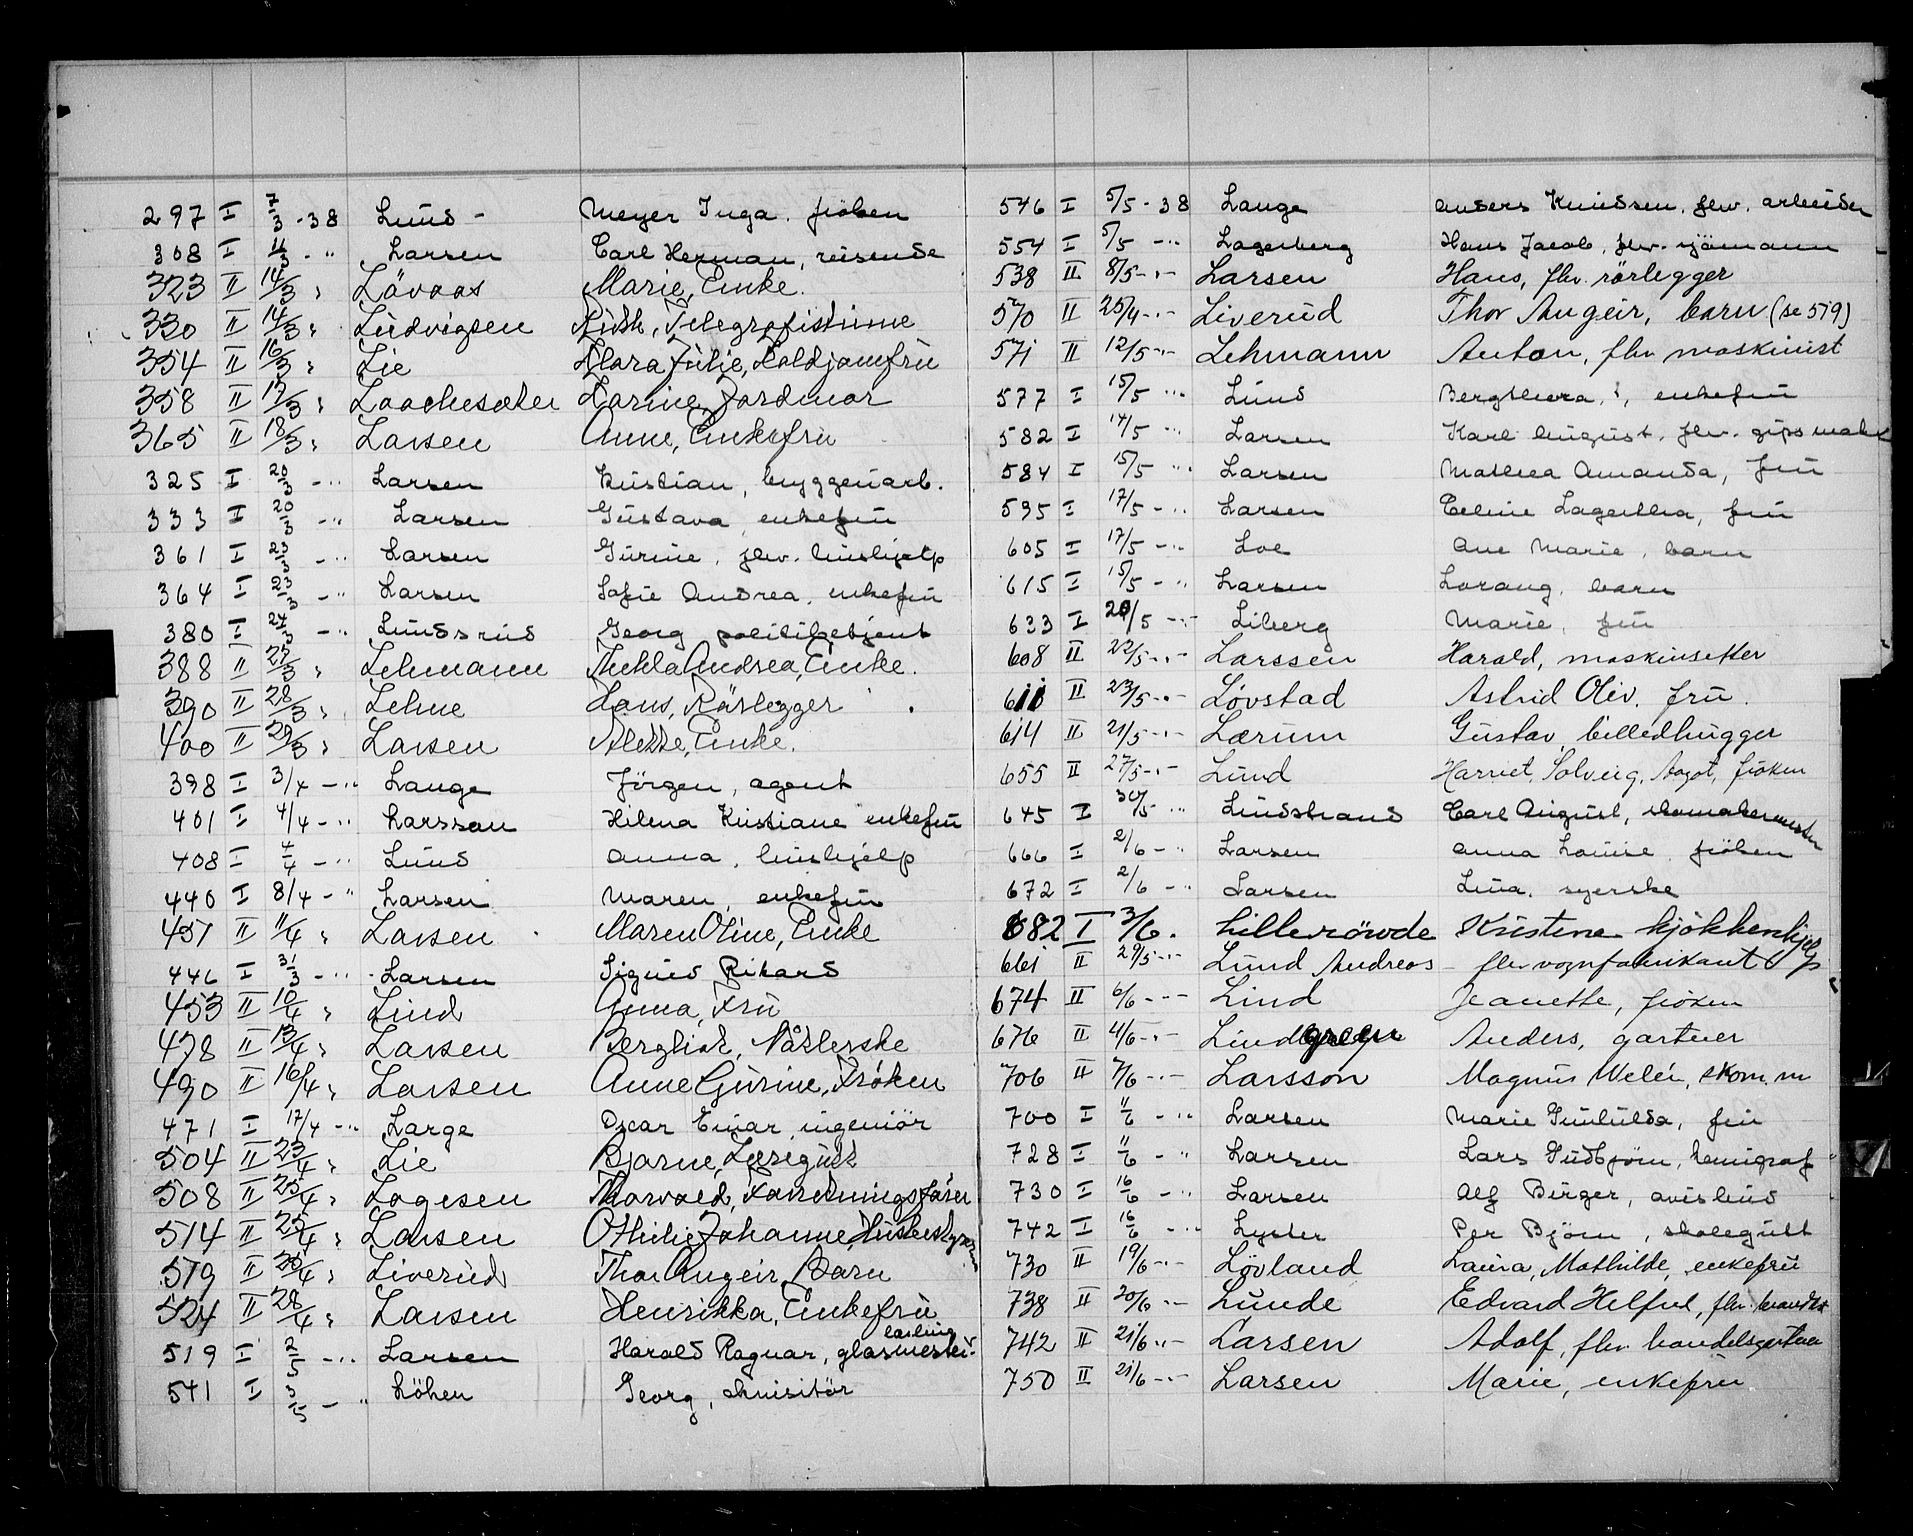 297 I 7/3 - 38 Lund - Meyer Inga, fröken
308 I 11/3 - " Larsen Carl Herman, reisende
323 II 14/3 " Lövaas Marie, Enke.
330 II 14/3 " Ludvigsen Ruth, Telegrafistinne
354 II 16/3 " Lie Klara Julie, Koldjomfru
358 II 17/3 " Laachesæter Karine, Jordmor
365 II 18/3 " Larsen Anne, Enkefru
325 I 20/3 - " Larsen Kristian, bryggeriarb.
333 I 20/3 - " Larsen Gustava, enkefru
361 I 23/3 - " Larsen Gurine, flw. hushjelp
364 I 23/3 - " Larsen Sofie Andrea, enkefru
380 I 24/3 - " Lundsrud Georg politibetjent
388 II 27/3 " Lehmann Thekla Andrea, Enke.
390 II 28/3 " Lehne Hans, Rørlegger
400 II 29/3 " Larsen Alette, Enke.
398 I 3/4 - " Lange Jörgen, agent
401 I 4/4 - " Larsson Hilena Kristiane enkefru
408 I 4/4 - " Lund Anna, hushjelp
440 I 8/4 - " Larsen Maren, enkefru
451 II 11/4 " Larsen Maren Oline, Enke
446 I 31/3 - " Larsen Sigurd Rikard
453 II 10/4 " Lind Anna, Fru
478 II 13/4 " Larsen Bergliot, Nåtlerske
490 II 16/4 " Larsen Anne Gurine, Frøken
471 I 17/4 - " Large Oscar Einar, ingeniör
504 II 23/4 " Lie Bjarne,
508 II 25/4 " Lagesen Thorvald, Forretningsfører
514 II 25/4 " Larsen Othilie Johanne, Husbestyrerin
519 II 25/4 " Liverud Thor Angeir, Barn
524 II 28/4 " Larsen Henrikka, Enkefru
519 I 2/5 - " Larsen Harald Ragnar, glasmester lærling
541 I 3/5 - " Löken Georg,
546 I 5/5 - 38 Lange Anders Knudsen, flw. arbeider
554 I 5/5 - " Lagerberg Hans Jacob, flw. sjömann
538 II 8/5 - " - Larsen Hans, flv. rörlegger
570 II 25/4 - " - Liverud Thor Angeir, barn (se 519)
571 II 12/5 " - Lehmann Anton, flv maskinist
577 I 15/5 " Lund Bergthora, , enkefru
582 I 14/5 " Larsen Karl August, flw. gipsmaker
584 I 15/5 " Larsen Mathea Amanda, fru
595 I 17/5 - " Larsen Eeline Lagertha, fru
605 I 17/5 - " Loe Ane Marie, barn
615 I 15/5 - " Larsen Lorang, barn
633 I 20/5 - " Liberg Marie, fru
608 II 22/5 - " - Larssen Harald, maskinsetter
611 II 23/5 - " - Løvstad Astrid Oliv. fru
614 II 21/5 - " - Lærum Gustav billedhugger
655 II 27/5 - " - Lund Harriet, Solveig, Aagot, fröken
645 I 30/5 " Lundstrand Carl August, skomakermester
666 I 2/6 - " Larsen Anna Louise, fröken
672 I 2/6 - " Larsen Lina, syerske
682 I 3/6. Lilleröwde Kristine kjökkenhjelp
661 II 29/5 - " - Lund Andreas flv vognfabrikant
674 II 6/6 - " - Lind Jeanette, fröken
676 II 4/6 - " - Lindgren Anders, gartner
706 II 7/6 - " - Larsson Magnus Welén, skom. m
700 I 11/6 - " Larsen Marie Gunhilda, fru
728 I 11/6 - " Larsen Lars Gudbjörn, kemigraf
730 I 16/6 - " Larsen Alf Birger, avisbud
742 I 16/6 - " Lyster Per Björn, skolegutt
730 II 19/6 - " - Lövland Laura, Mathilde, enkefru
738 II 20/6 " - Lunde Edvard Helfred, flv.
742 II 21/6 " - Larsen Adolf, flv handelsgartner
750 II 21/6 - " - Larsen Marie, enkefru